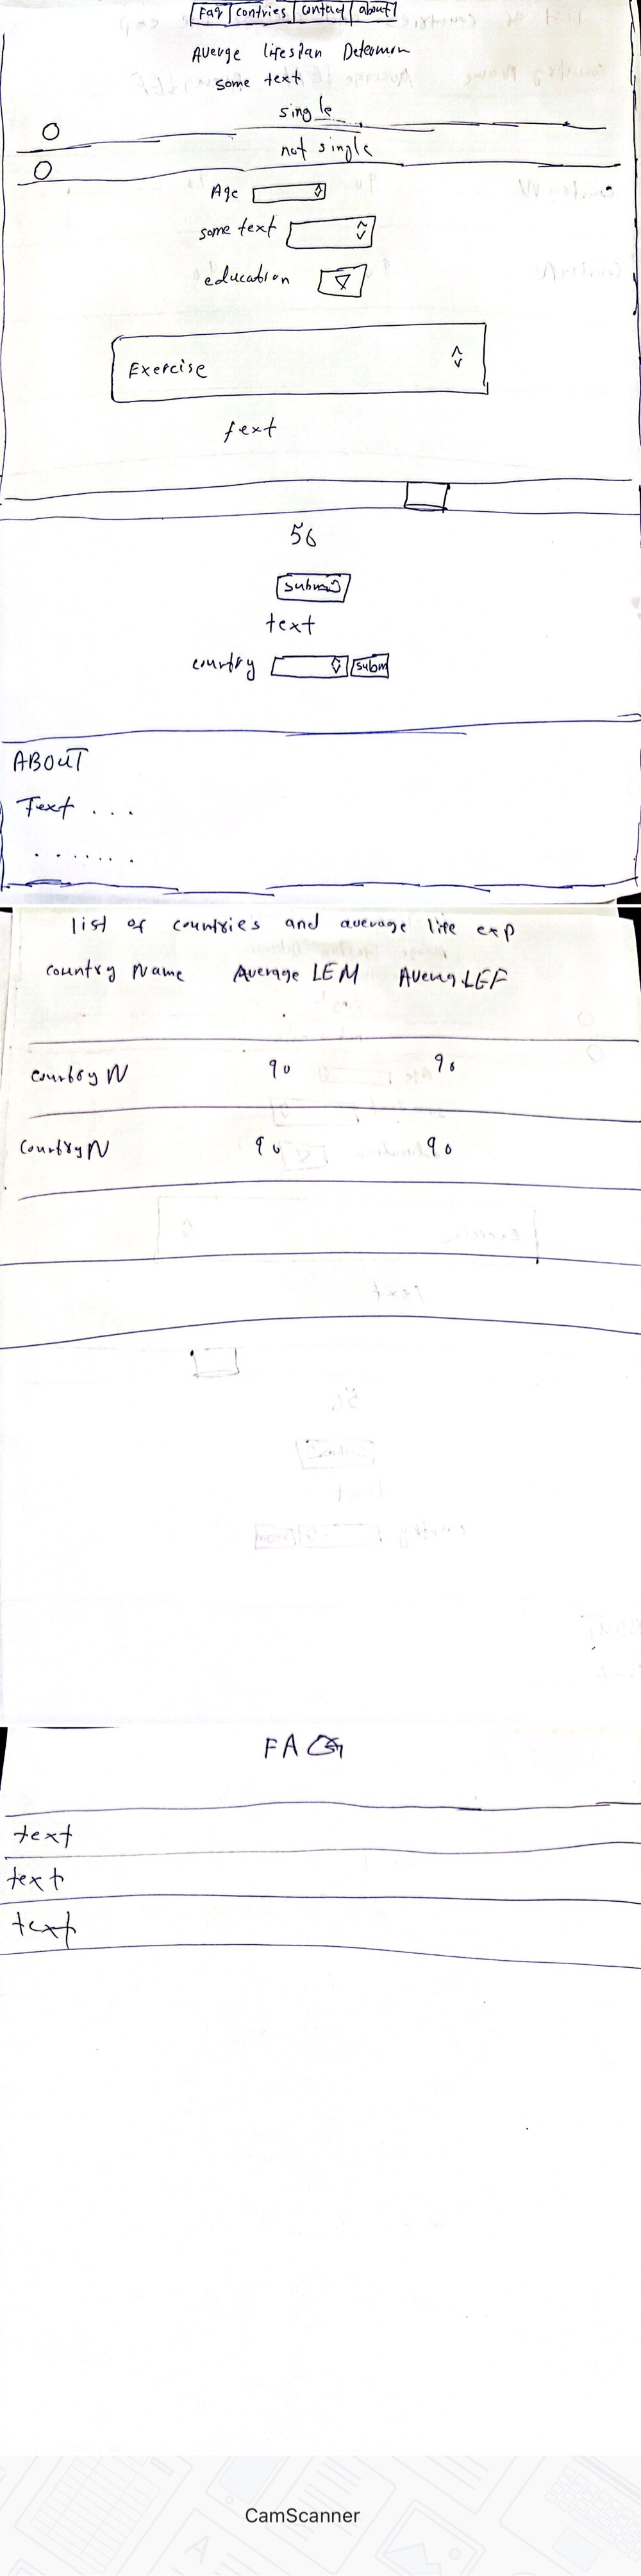 Faq contries contact about
Averge lifespan Determin
some text
single
not single
Age
some text
education
Exercise
text
56
submit
text
country subm
ABOUT
Text . . .
. . . . . . .
list of countries and average life exp
country Name Average LEM Averag LEF
country N 90 90
Country N 90 90
FAQ
text
text
text
CamScanner